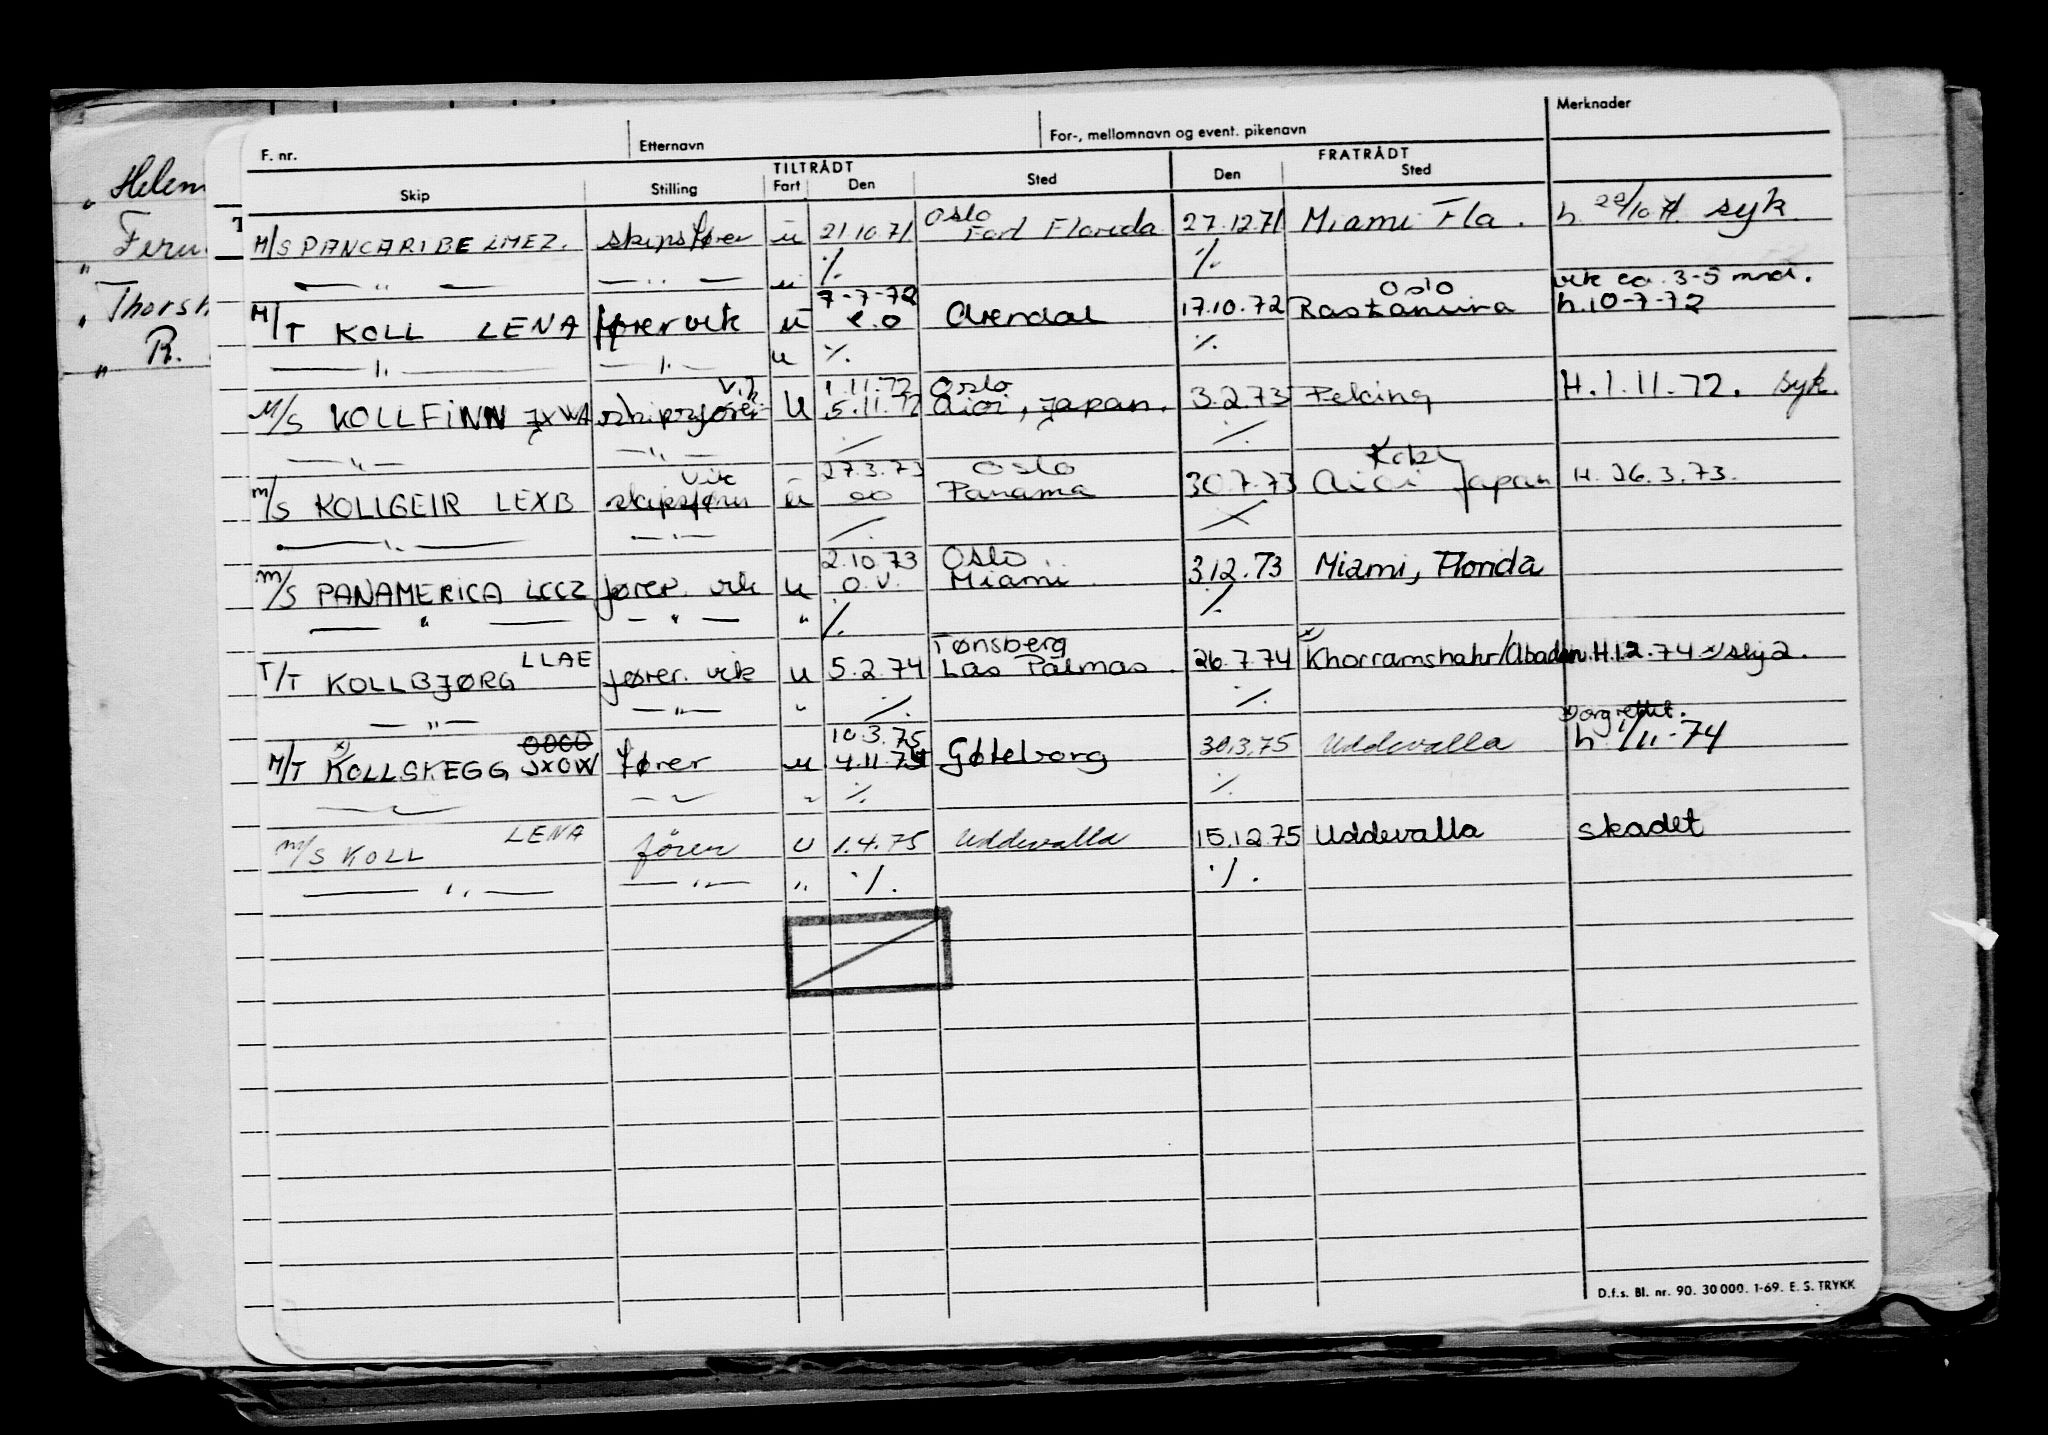 F. nr. Etternavn For-, mellomnavn og event. pikenavn Merknader
TILTRÅDT FRATRÅDT
Skip Stilling Fart Den Sted Den Sted
Helen
Fern
Thorsh
R.
Oslo
M/S PANCARIBE LMEZ. skipsfører u 21.10.71 Port Florida 27.12.71 Miami Fla. h. 22/10 71 syk
— " — — " — u ./. ./.
7-7-72 Oslo vik ca. 3-5 mnd.
M/T KOLL LENA fører vik u e.o Arendal 17.10.72 Rastanura h.10-7-72
— " — — " — u ./. ./.
v.k 1.11.72 Oslo
M/S KOLLFINN JXWA skipsfører U 5.11.72 Aioi, Japan. 3.2.73 Peking H.1.11.72. syk.
— " — — " — ./. ./.
vik 27.3.73 Oslo Kobe
m/S KOLLGEIR LEXB skipsfører u oo Panama 30.7.73 Aioi Japan H. 26.3.73.
— " — — " — ./. ./.
2.10.73 Oslo
m/S PANAMERICA LCCZ fører vik u o.v. Miami 3.12.73 Miami, Florida
— " — — " — " ./. ./.
LLAE Tønsberg x)
T/T KOLLBJØRG fører vik u 5.2.74 Las Palmas 26.7.74 Khorramshahr/Abadan H.1.2.74
— " — — " — " ./. ./.
x) 10.3.75 x) org rettet.
M/T KOLLSKEGG JXOW fører u 4.11.74 Gøteborg 30.3.75 Uddevalla h. 1/11-74
— " — — " — " ./. ./.
LENA
m/S KOLL fører u 1.4.75 Uddevalla 15.12.75 Uddevalla skadet
— " — — " — " ./. ./.
D.f.s. Bl. nr. 90. 30 000. 1-69. E. S. TRYKK